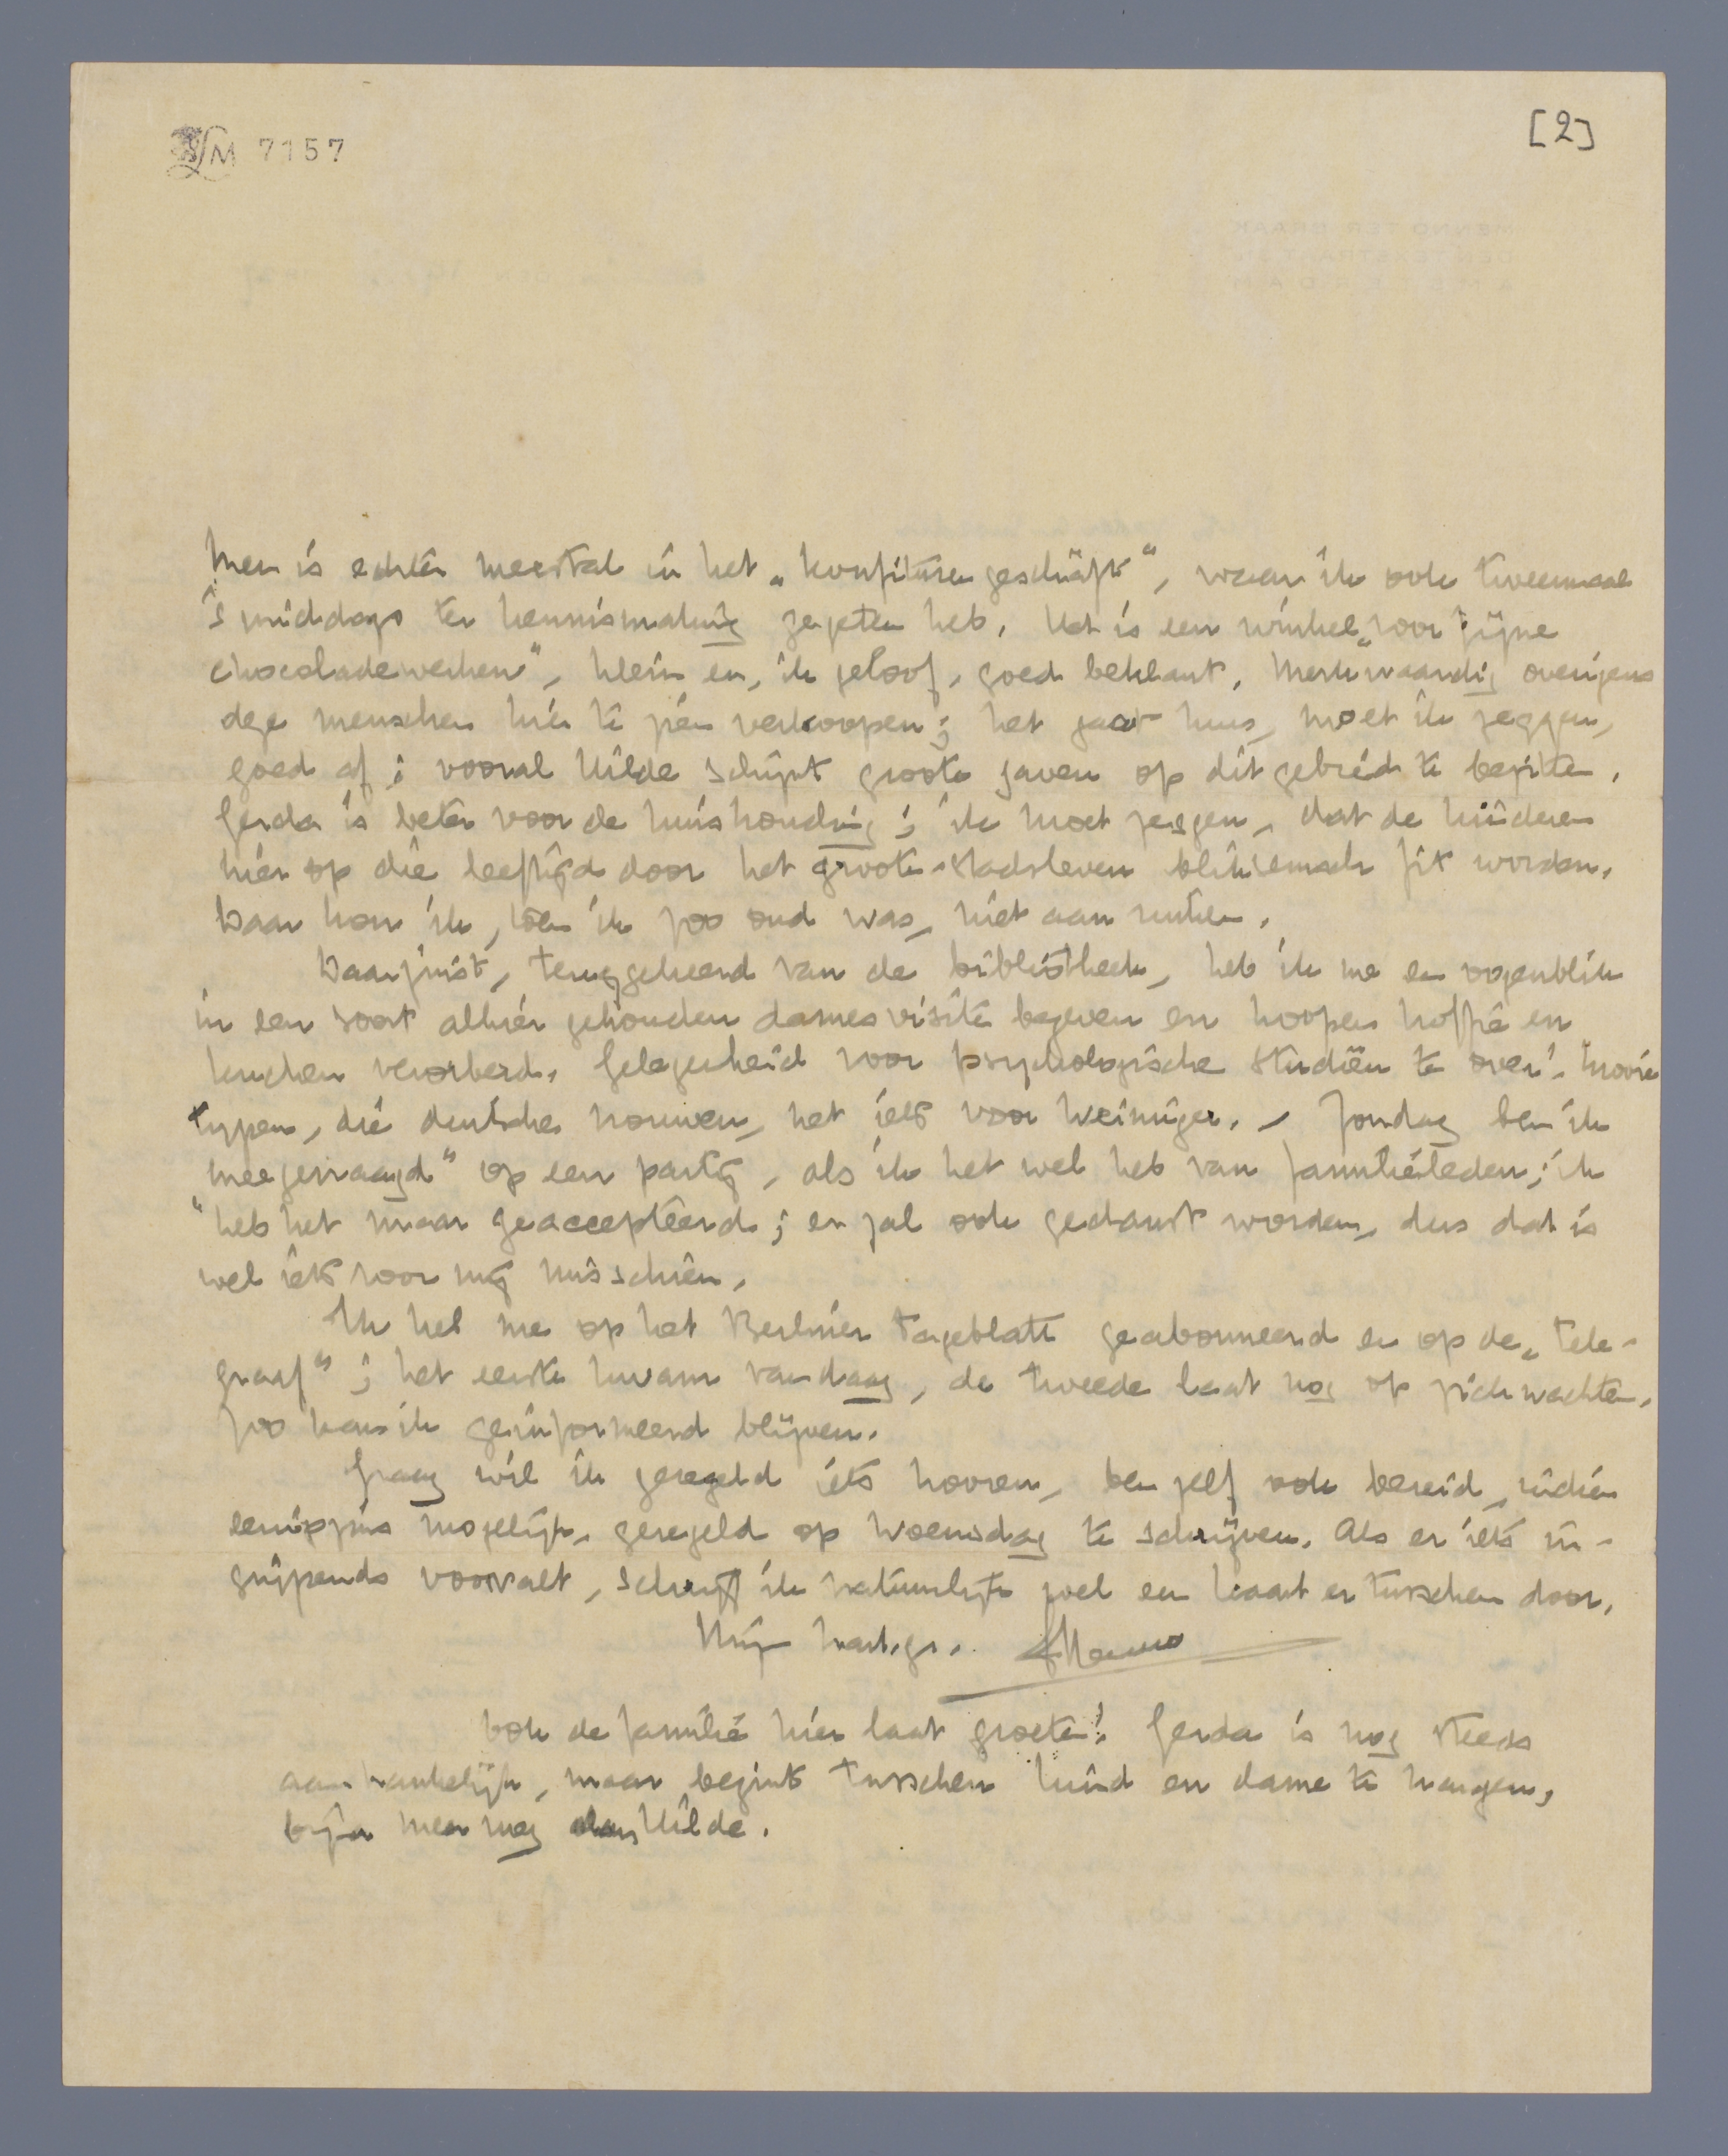 LM 7157
[2]
Men is echter meestal in het „Konfiturengeschäft“, waar ik ook tweemaal
's middags ter kennismaking gegeten heb. Het is een winkel „voor fijne
chocoladewerken“, klein en, ik geloof, goed beklant. Merkwaardig overigens
deze menschen hier te zien verkoopen; het gaat hun, moet ik zeggen,
goed af; vooral Hilde schijnt groote gaven op dit gebied te bezitten.
Gerda is beter voor de huishouding; ik moet zeggen, dat de kinderen
hier op die leeftijd door het groote-stadsleven bliksemsch fix worden.
Daar kon ik, toen ik zoo oud was, niet aan ruiken.
Daarjuist, teruggekeerd van de bibliotheek, heb ik me een oogenblik
in een soort alhier gehouden damesvisite begeven en hoopen koffie en
kuchen verorberd. Gelegenheid voor psychologische studiën te over! Mooie
typen, die deutsche vrouwen, net iets voor Weininger. – Zondag ben ik
„meegevraagd“ op een partij, als ik het wel heb van familieleden; ik
heb het maar geaccepteerd; er zal ook gedanst worden, dus dat is
wel iets voor mij misschien.
Ik heb me op het Berliner Tageblatt geabonneerd en op de „Tele-
graaf“; het eerste kwam vandaag, de tweede laat nog op zich wachten.
Zoo kan ik geïnformeerd blijven.
Graag wil ik geregeld iets hooren, ben zelf ook bereid, indien
eenigszins mogelijk, geregeld op Woensdag te schrijven. Als er iets in-
grijpends voorvalt, schrijf ik natuurlijk wel een kaart er tusschen door.
Mijn hart. gr. Menno
Ook de familie hier laat groeten! Gerda is nog steeds
aanhankelijk, maar begint tusschen kind en dame te hangen,
bijna meer nog dan Hilde.